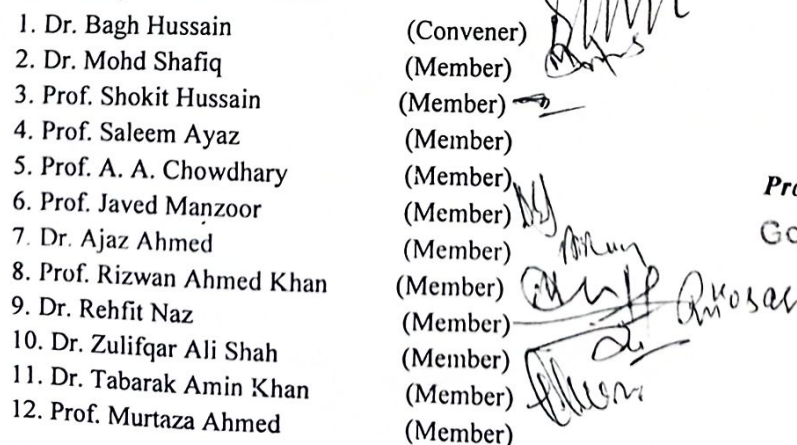 1. Dr. Bagh Hussain (Convener)
2. Dr. Mohd Shafiq (Member)
3. Prof. Shokit Hussain (Member)
4. Prof. Saleem Ayaz (Member)
5. Prof. A. A. Chowdhary (Member)
6. Prof. Javed Manzoor (Member)
7. Dr. Ajaz Ahmed (Member)
8. Prof. Rizwan Ahmed Khan (Member)
9. Dr. Rehfit Naz (Member)
10. Dr. Zulifqar Ali Shah (Member)
11. Dr. Tabarak Amin Khan (Member)
12. Prof. Murtaza Ahmed (Member)